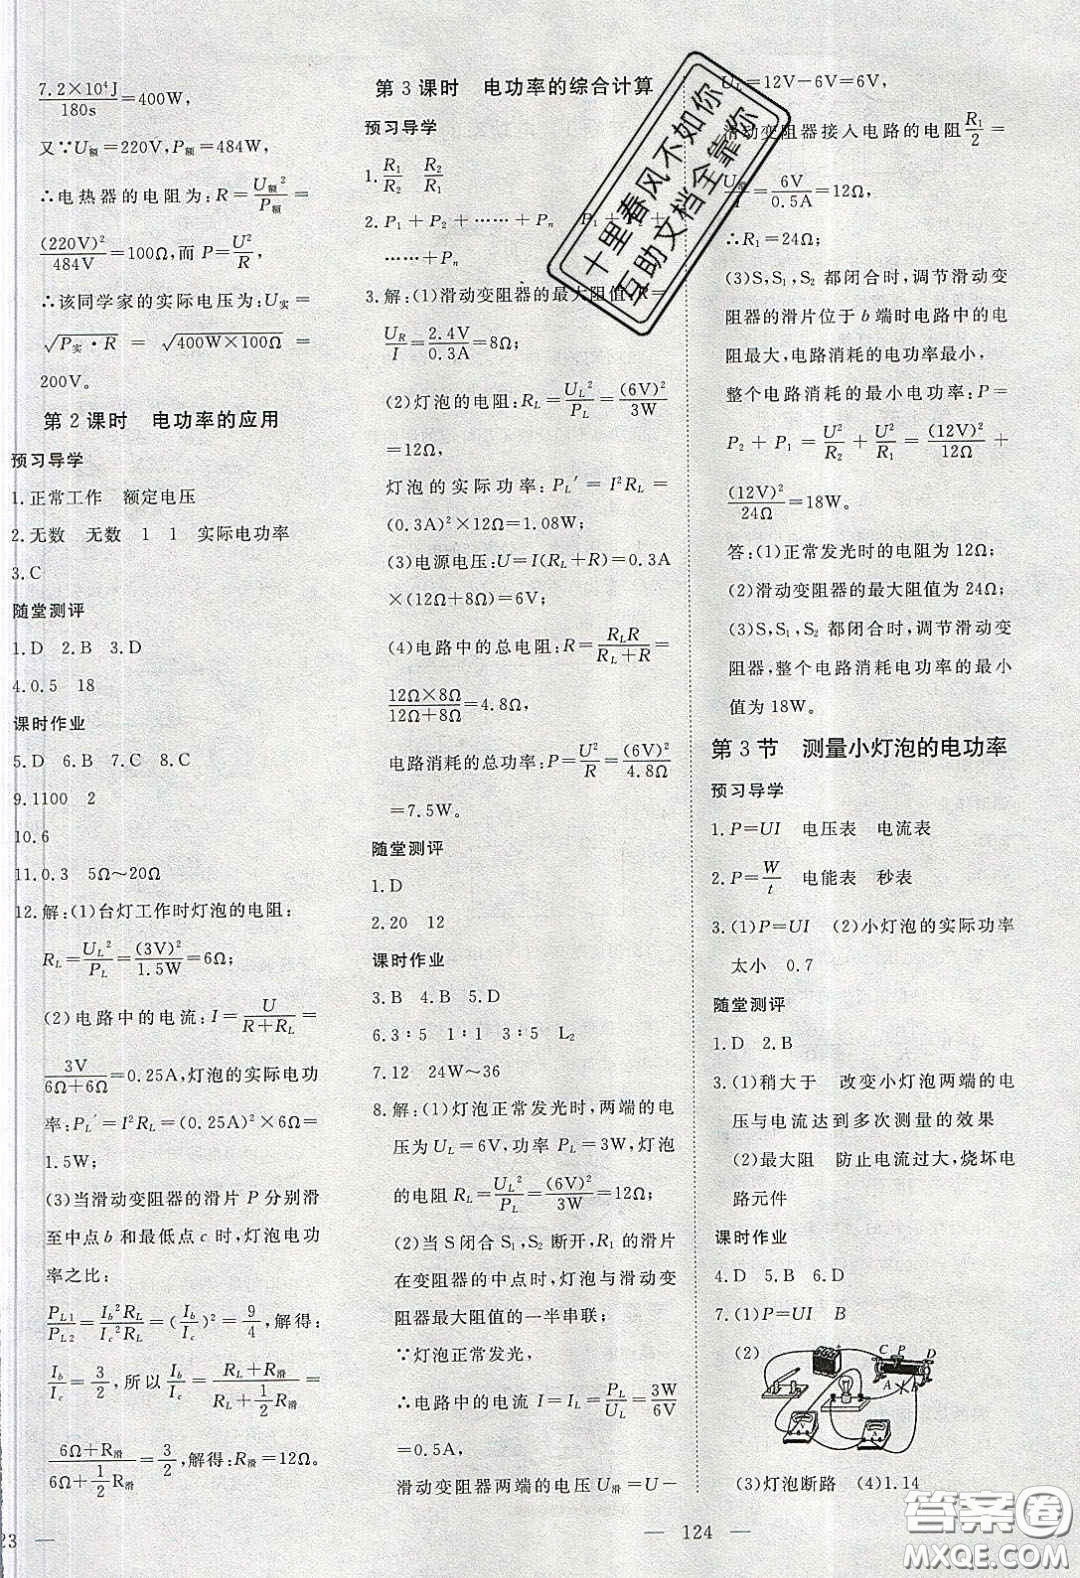 7.2×10⁴J/180s=400W,
又∵U额=220V,P额=484W,
∴电热器的电阻为:R=U额²/P额=
(220V)²/484V=100Ω,而P=U²/R,
∴该同学家的实际电压为:U实=
√(P实·R) = √(400W×100Ω) =
200V。
第2课时 电功率的应用
预习导学
1.正常工作 额定电压
2.无数 无数 1 1 实际电功率
3.C
随堂测评
1.D 2.B 3.D
4.0.5 18
课时作业
5.D 6.B 7.C 8.C
9.1100 2
10.6
11.0.3 5Ω~20Ω
12.解:(1)台灯工作时灯泡的电阻:
R_L=U_L²/P_L=(3V)²/1.5W=6Ω;
(2)电路中的电流:I=U/(R+R_L)=
3V/(6Ω+6Ω)=0.25A,灯泡的实际电功
率:P_L′=I²R_L=(0.5A)²×6Ω=
1.5W;
(3)当滑动变阻器的滑片P分别滑
至中点b和最低点c时,灯泡电功
率之比:
P_L1/P_L2=I_b²R_L/I_c²R_L=(I_b/I_c)²=9/4,解得:
I_b/I_c=3/2,所以I_b/I_c=(R_L+R滑)/(R_L+½R滑)=
(6Ω+R滑)/(6Ω+½R滑)=3/2,解得:R滑=12Ω。
23
第3课时 电功率的综合计算
预习导学
1.R₁/R₂ R₂/R₁
2.P₁+P₂+……+Pₙ P₁+P₂+
……+Pₙ
3.解:(1)滑动变阻器的最大阻值:R=
U_R/I=2.4V/0.3A=8Ω;
(2)灯泡的电阻:R_L=U_L²/P_L=(6V)²/3W
=12Ω,
灯泡的实际功率:P_L′=I²R_L=
(0.3A)²×12Ω=1.08W;
(3)电源电压:U=I(R_L+R)=0.3A
×(12Ω+8Ω)=6V;
(4)电路中的总电阻:R=R_LR/(R_L+R)=
12Ω×8Ω/(12Ω+8Ω)=4.8Ω,
电路消耗的总功率:P=U²/R=(6V)²/4.8Ω
=7.5W。
随堂测评
1.D
2.20 12
课时作业
3.B 4.B 5.D
6.3∶5 1∶1 3∶5 L₂
7.12 24W~36
8.解:(1)灯泡正常发光时,两端的电
压为U_L=6V,功率P_L=3W,灯泡
的电阻R_L=U_L²/P_L=(6V)²/3W=12Ω;
(2)当S闭合S₁,S₂断开,R₁的滑片
在变阻器的中点时,灯泡与滑动变
阻器最大阻值的一半串联;
∵灯泡正常发光,
∴电路中的电流I=I_L=P_L/U_L=3W/6V
=0.5A,
滑动变阻器两端的电压U滑=U-
— 124 —
U_L=12V-6V=6V;
滑动变阻器接入电路的电阻R₁/2=
U滑/I=6V/0.5A=12Ω,
∴R₁=24Ω;
(3)S,S₁,S₂都闭合时,调节滑动变
阻器的滑片位于b端时电路中的电
阻最大,电路消耗的电功率最小,
整个电路消耗的最小电功率:P=
P₂+P₁=U²/R₂+U²/R₁=(12V)²/12Ω+
(12V)²/24Ω=18W。
答:(1)正常发光时的电阻为12Ω;
(2)滑动变阻器的最大阻值为24Ω;
(3)S,S₁,S₂都闭合时,调节滑动变
阻器,整个电路消耗电功率的最小
值为18W。
第3节 测量小灯泡的电功率
预习导学
1.P=UI 电压表 电流表
2.P=W/t 电能表 秒表
3.(1)P=UI (2)小灯泡的实际功率
太小 0.7
随堂测评
1.D 2.B
3.(1)稍大于 改变小灯泡两端的电
压与电流达到多次测量的效果
(2)最大阻 防止电流过大,烧坏电
路元件
课时作业
4.D 5.B 6.D
7.(1)P=UI B
(2)
C P D
A B
(3)灯泡断路 (4)1.14
十里春风不如你
互助文档全靠你
答案圈
MXQE.COM